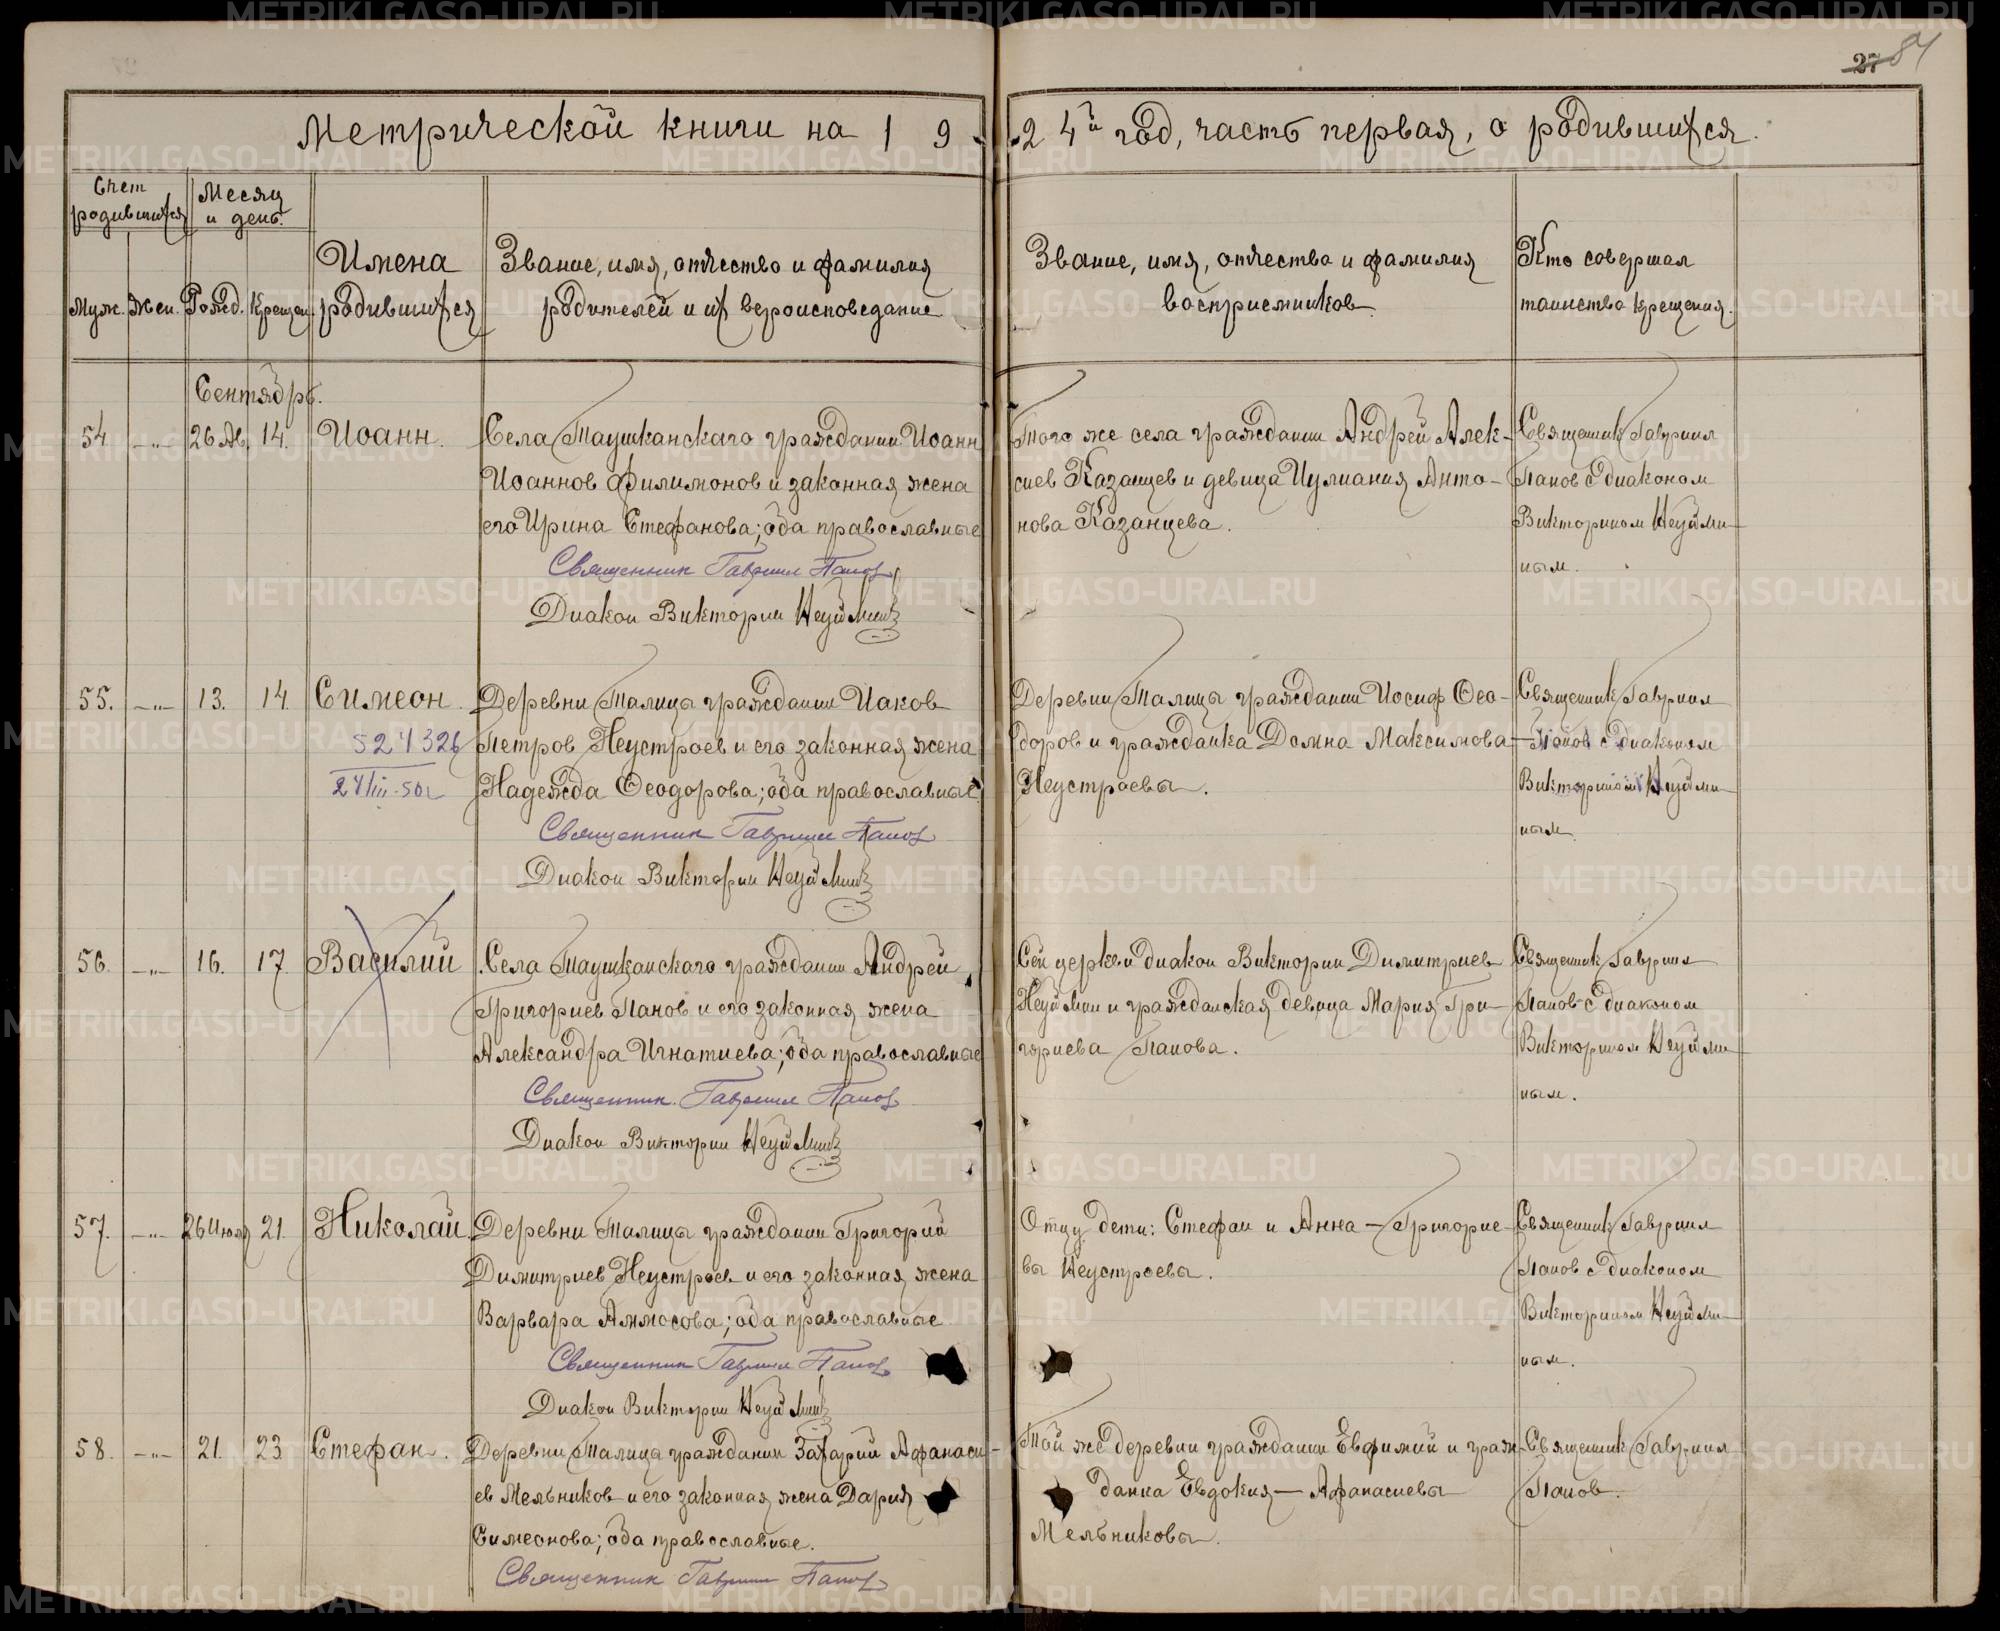 27 84
Метрической книги на 1924й год, часть первая, о родившихся.
Счет родившихся
Месяц и день.
Муж. Жен. Рожд. Крещен.
Имена
родившихся
Звание, имя, отчество и фамилия
родителей и их вероисповедание
Звание, имя, отчество и фамилия
восприемников
Кто совершал
таинство крещения.
Сентябрь.
54 -"- 26 Ав. 14. Иоанн.
Села Таушканскаго гражданин Иоанн
Иоаннов Филимонов и законная жена
его Ирина Стефанова; оба православные
Священник Гавриил Попов
Диакон Викторин Неуймин
Того же села гражданин Андрей Алек-
сиев Казанцев и девица Иулиания Анто-
нова Казанцева.
Священник Гавриил
Попов с диаконом
Викторином Неуйми-
ным.
55. -"- 13. 14. Симеон.
524326
24/III-50г
Деревни Талицы гражданин Иаков
Петров Неустроев и его законная жена
Надежда Феодорова; оба православные
Священник Гавриил Попов
Диакон Викторин Неуймин
Деревни Талицы гражданин Иосиф Фео-
доров и гражданка Домна Максимова
Неустроевы.
Священник Гавриил
Попов с диаконом
Викторином Неуйми-
ным.
56. -"- 16. 17. Василий
Села Таушканскаго гражданин Андрей
Григориев Панов и его законная жена
Александра Игнатиева; оба православные
Священник Гавриил Попов
Диакон Викторин Неуймин
Сей церкви диакон Викторин Димитриев
Неуймин и гражданская девица Мария Гри-
гориева Панова.
Священник Гавриил
Попов с диаконом
Викторином Неуйми-
ным.
57. -"- 26 Июля 21. Николай.
Деревни Талицы гражданин Григорий
Димитриев Неустроев и его законная жена
Варвара Аммосова; оба православные
Священник Гавриил Попов
Диакон Викторин Неуймин
Отцу дети: Стефан и Анна - Григорие-
вы Неустроевы.
Священник Гавриил
Попов с диаконом
Викторином Неуйми-
ным.
58. -"- 21. 23 Стефан.
Деревни Талицы гражданин Захарий Афанаси-
ев Мельников и его законная жена Дария
Симеонова; оба православные.
Священник Гавриил Попов
Той же деревни гражданин Евфимий и граж-
данка Евдокия - Афанасиевы
Мельниковы.
Священник Гавриил
Попов.
METRIKI.GASO-URAL.RU